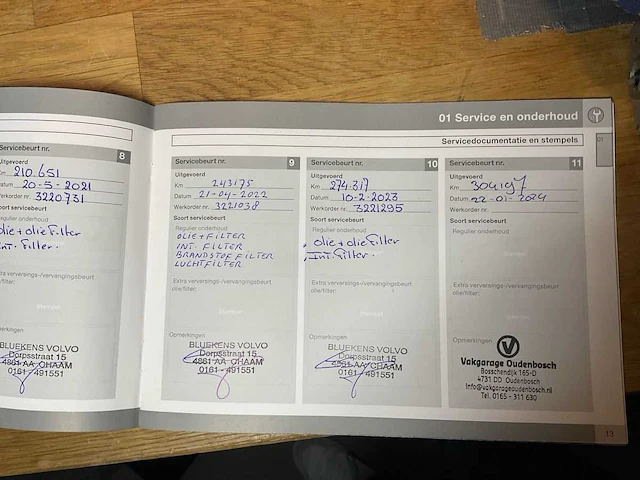 01 Service en onderhoud
01
Servicedocumentatie en stempels
Servicebeurt nr. 8
Uitgevoerd
Km 210.651
Datum 20-5-2021
Werkorder nr. 3220731
Soort servicebeurt
Regulier onderhoud
olie + olie Filter
Int. Filter.
Extra verversings-/vervangingsbeurt
olie/filter:
Opmerkingen
BLUEKENS VOLVO
Dorpsstraat 15
4861 AA CHAAM
0161 - 491551
Servicebeurt nr. 9
Uitgevoerd
Km 243175
Datum 21-04-2022
Werkorder nr. 3221038
Soort servicebeurt
Regulier onderhoud
OLIE + FILTER
INT. FILTER
BRANDSTOF FILTER
LUCHTFILTER
Extra verversings-/vervangingsbeurt
olie/filter:
Stempel
Opmerkingen
BLUEKENS VOLVO
Dorpsstraat 15
4861 AA CHAAM
0161 - 491551
Servicebeurt nr. 10
Uitgevoerd
Km 274.317
Datum 10-2-2023
Werkorder nr. 3221295
Soort servicebeurt
Regulier onderhoud
olie + olie Filter
Int. Filter.
Extra verversings-/vervangingsbeurt
olie/filter:
Stempel
Opmerkingen
BLUEKENS VOLVO
Dorpsstraat 15
4861 AA CHAAM
0161 - 491551
Servicebeurt nr. 11
Uitgevoerd
Km 304197
Datum 22-01-2024
Werkorder nr.
Soort servicebeurt
Regulier onderhoud
Extra verversings-/vervangingsbeurt
olie/filter:
Opmerkingen
Vakgarage Oudenbosch
Bosschendijk 165-D
4731 DD Oudenbosch
Info@vakgarageoudenbosch.nl
Tel. 0165 - 311 630
13